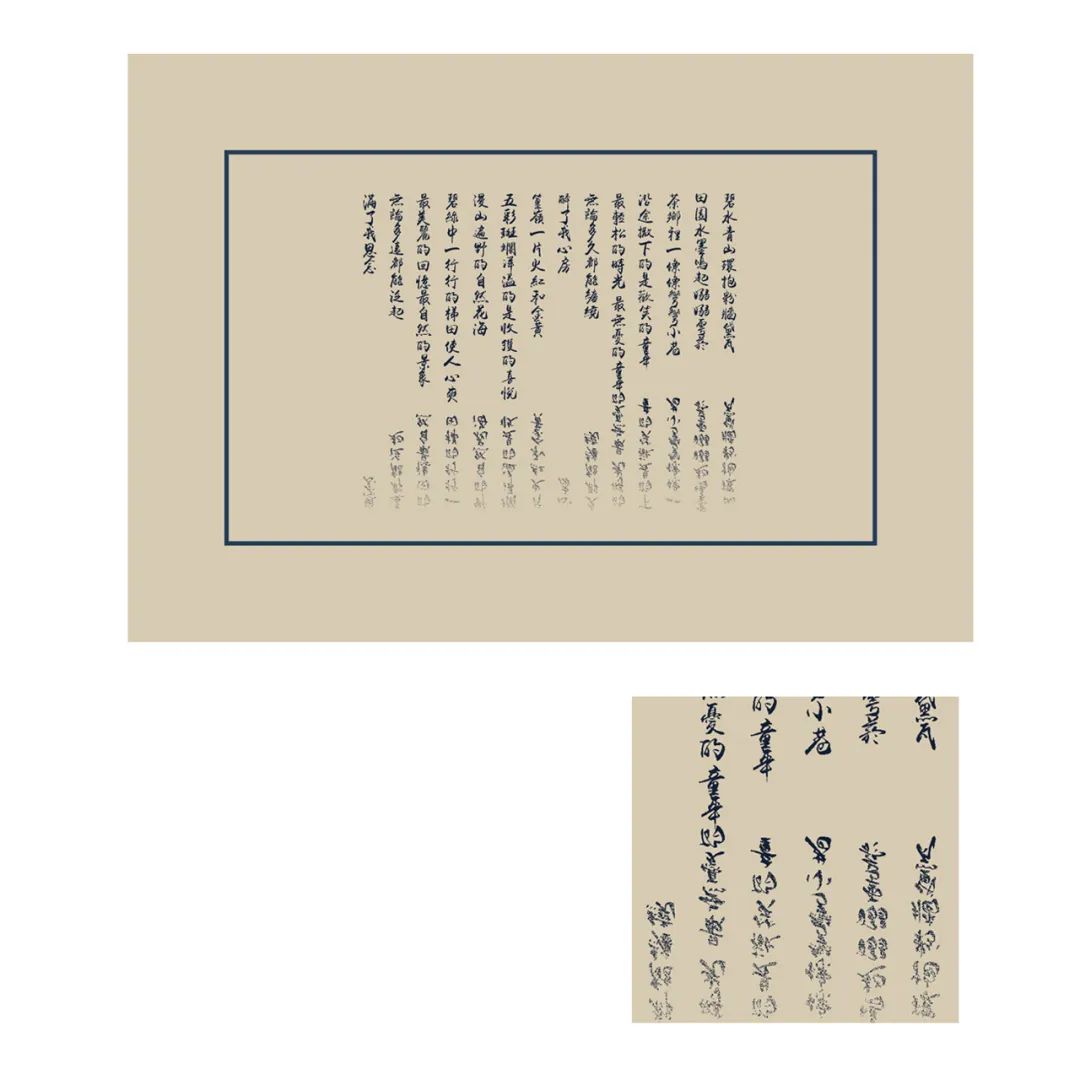 碧水青山環抱粉牆黛瓦
田園水墨起雲菸
茶鄉裡一條條彎彎小巷
沿途撒下的是歡笑的童年
最輕松的時光 最無憂的童年
無論多久都能縈繞
醉了我心房
篁嶺一片火紅和金黃
五彩斑斕洋溢的是收獲的喜悅
漫山遍野的自然花海
碧綠中一行行的梯田使人心爽
最美麗的回憶最自然的景象
無論多遠都能泛起
滿了我思念
黛瓦
雲菸
小巷
的童年
無憂的童年